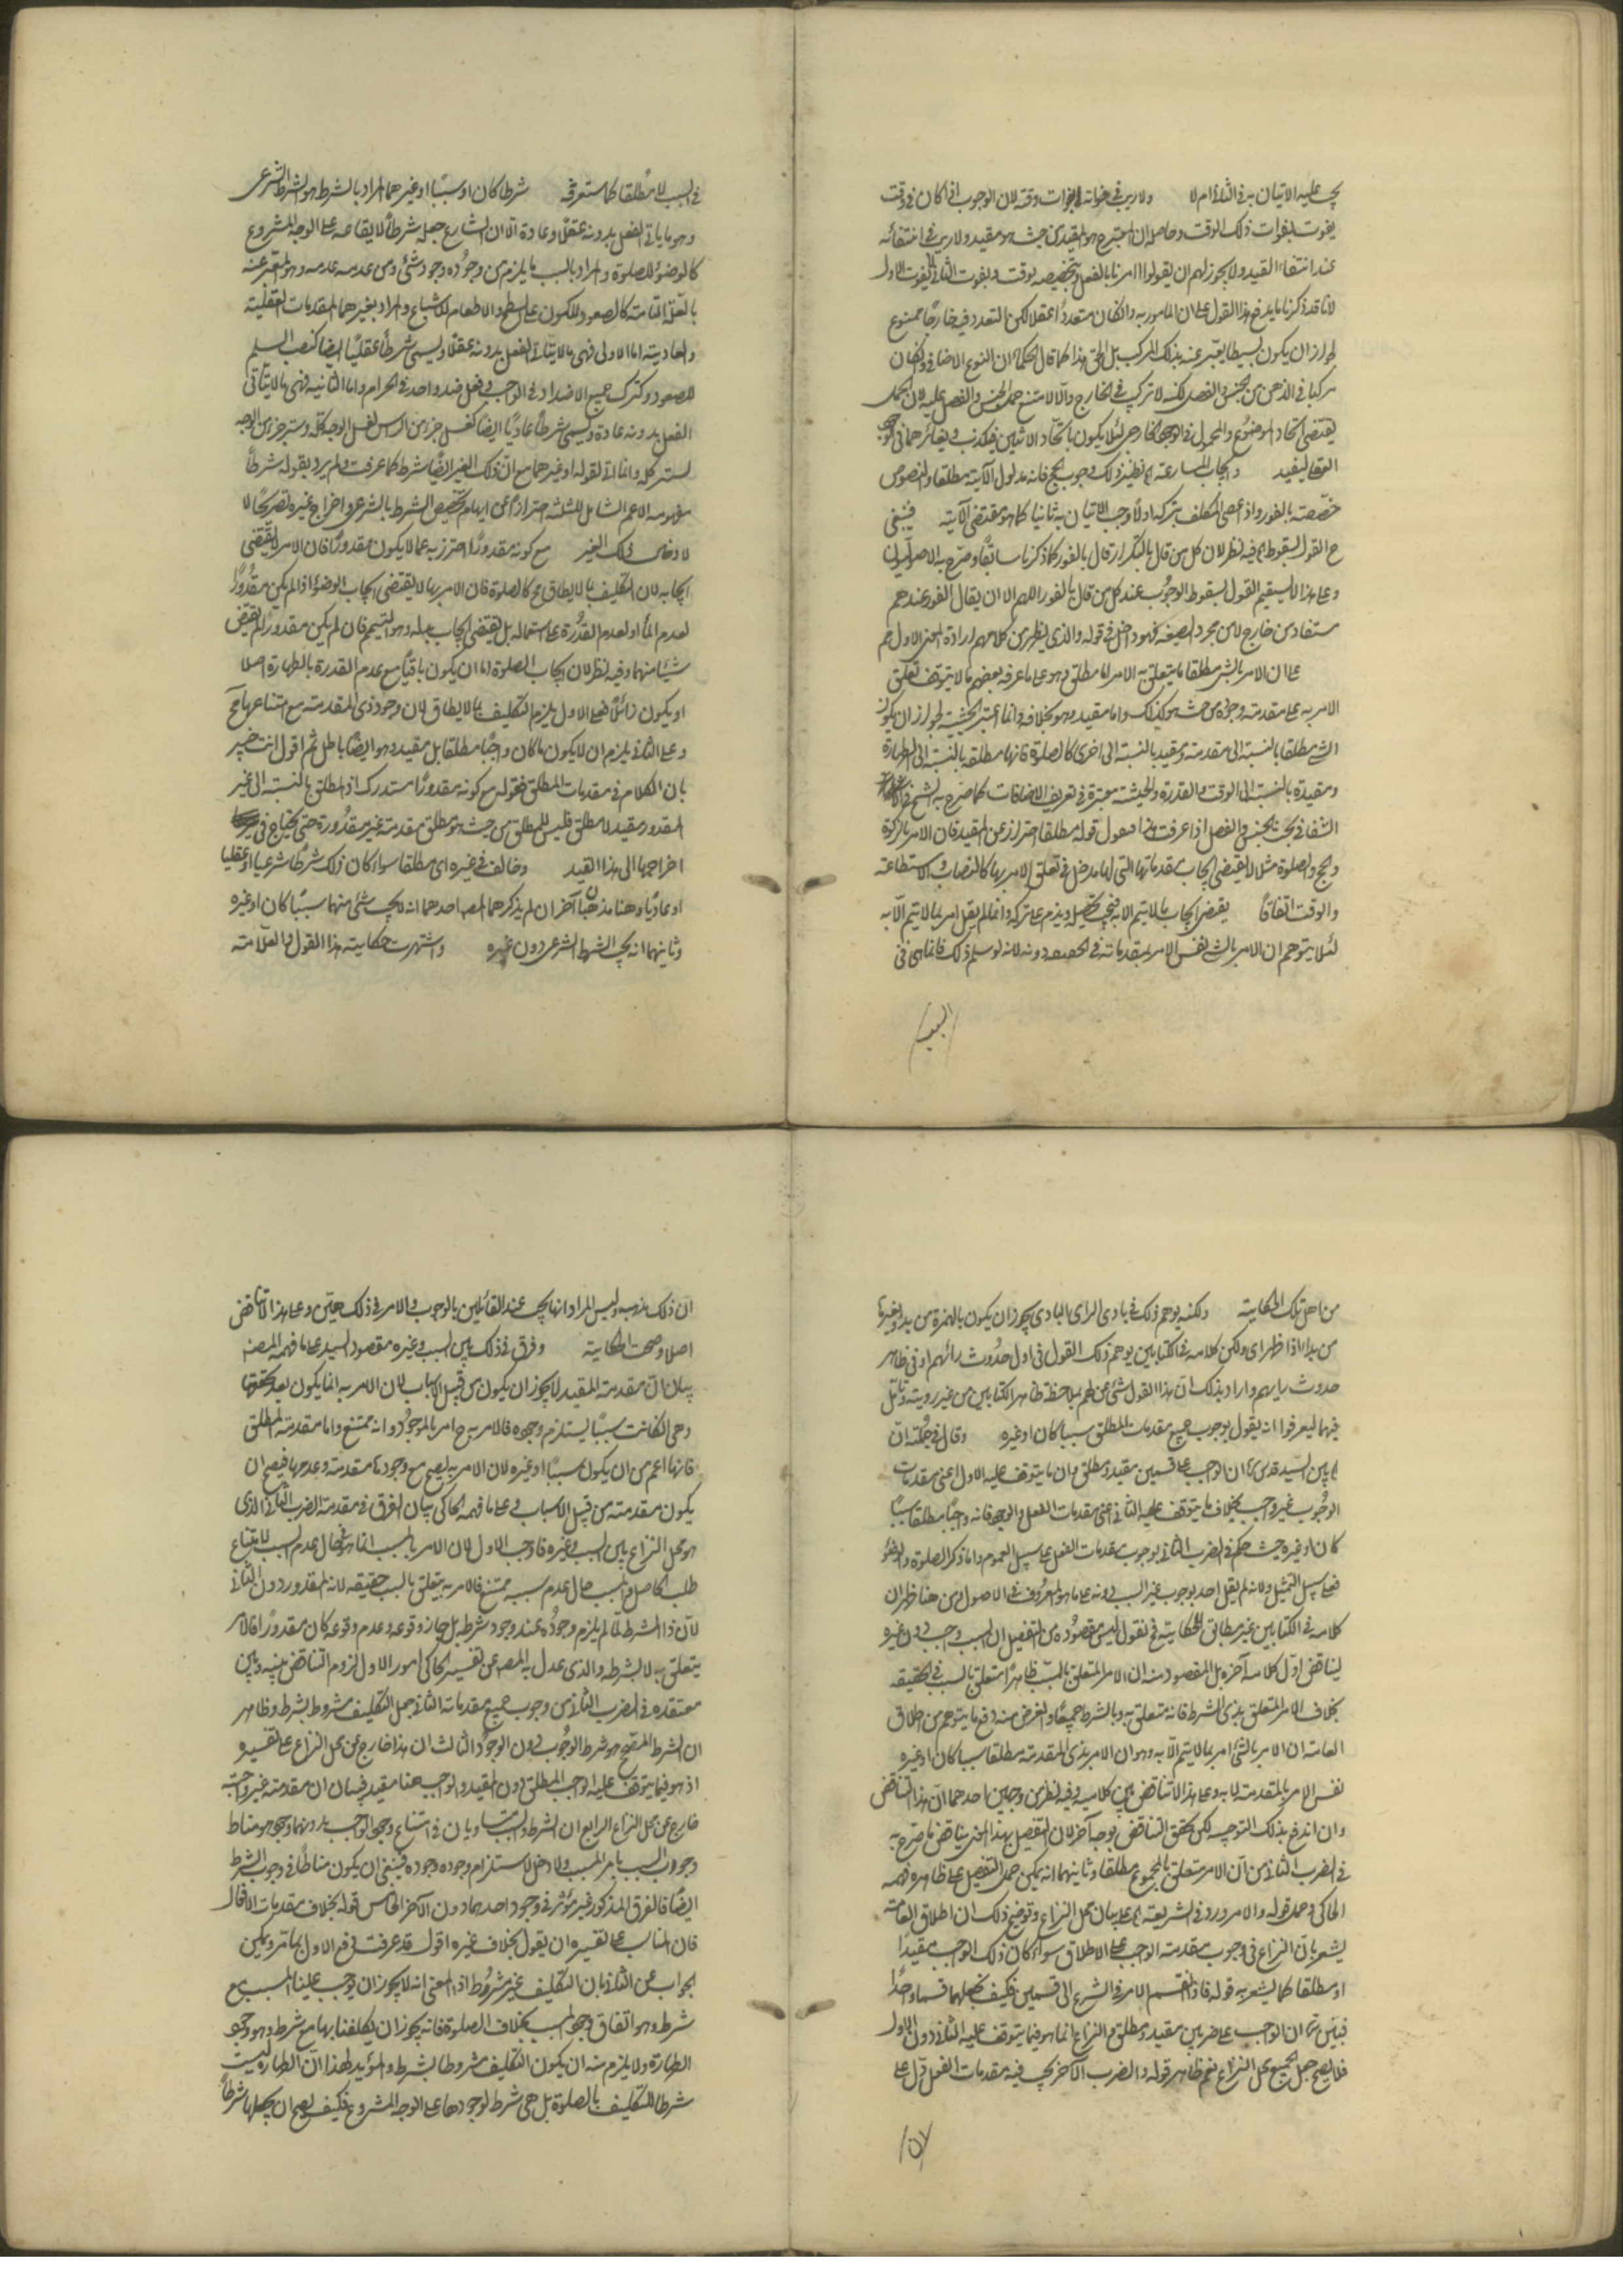 يجب عليه الاتيان به في الثاني ام لا ولا ريب في فواته بفوات وقته لان الوجوب اذا كان في وقت
يفوت بفوات ذلك الوقت وحاصله ان المقيد من حيث هو مقيد ولا ريب في انتفائه
عند انتفاء القيد ولا يجوز لهم ان يقولوا امرنا بالفعل وبتخصيصه بوقت وبفوت الثاني لا يفوت الاول
لانا قد ذكرنا ما يدفع هذا القول على ان المأمور به وان كان متعددا عقلا لكن التعدد فيه خارجا ممنوع
لجواز ان يكون بسيطا يعبر عنه بذلك المركب بل الحق هذا كما قال الحكماء ان النوع الاضافي وان كان
مركبا في الذهن من الجنس والفصل لكنه لا تركب في الخارج والا لامتنع حمل الجنس والفصل عليه لان الحمل
يقتضي اتحاد الموضوع والمحمول في الوجود الخارجي لئلا يكون باتحاد الاثنين فيكذب وتغائرهما في الوجود
العقلي ليفيد وايجاب المسارعة اه نظير ذلك وجوب الحج فانه مدلول الآية مطلقا والنصوص
خصصته بالفور واذا عصى المكلف بتركه اولا وجب الاتيان به ثانيا كما هو مقتضى الآية فينبغي
ح القول بسقوط اه فيه نظر لان كل من قال بالتكرار قال بالفور كما ذكرنا سابقا وصرح به الاصوليون
وعلى هذا لا يستقيم القول بسقوط الوجوب عند كل من قال بالفور اللهم الا ان يقال الفور عندهم
مستفاد من خارج لا من مجرد الصيغة فهو داخل في قوله والذي يظهر من كلامهم ارادة المعنى الاول
على ان الامر بالشيء مطلقا ما يتعلق به الامر اما مطلق وهو على ما عرفه بعضهم ما لا يتوقف تعلق
الامر به على مقدمة وجوده من حيث هو كذلك واما مقيد وهو بخلافه وانما اعتبر الحيثية لجواز ان يكون
الشيء مطلقا بالنسبة الى مقدمة ومقيدا بالنسبة الى اخرى كالصلوة فانها مطلقة بالنسبة الى الطهارة
ومقيدة بالنسبة الى الوقت والقدرة والحيثية معتبرة في تعريف الاضافات كما صرح به الشيخ في
الشفا في بحث الجنس والفصل اذا عرفت هذا فنقول قوله مطلقا احتراز عن المقيد فان الامر بالزكوة
والحج والصلوة مثلا لا يقتضي ايجاب مقدماتها التي لها مدخل في تعلق الامر بها كالنصاب والاستطاعة
والوقت اتفاقا يقتضي ايجاب ما لا يتم الا به فيجب تحصيله ويذم على تركه وانما لم يقل امر بما لا يتم الا به
لئلا يتوهم ان الامر بالشيء نفس الامر بمقدماته في الحقيقة دونه لانه لو سلم ذلك فانما هي في
السبب
في السبب لا مطلقا كما ستعرفه شرطا كان او سببا او غيرهما المراد بالشرط هو الشرط الشرعي
وهو ما يأتي الفعل بدونه عقلا وعادة الا ان الشارع جعله شرطا لايقاعه على الوجه المشروع
كالوضوء للصلوة والمراد بالسبب ما يلزم من وجوده وجود شيء ومن عدمه عدمه وهو المعبر عنه
بالعلة التامة كالصعود للكون على السطح والاطعام للاشباع والمراد بغيرهما المقدمات العقلية
والعادية اما الاولى فهي ما لا يتأتى الفعل بدونه عقلا ويسمى شرطا عقليا ايضا كنصب السلم
للصعود وكترك جميع الاضداد في الواجب وفعل ضد واحد في الحرام واما الثانية فهي ما لا يتأتى
الفعل بدونه عادة ويسمى شرطا عاديا ايضا كغسل جزء من الرأس لغسل الوجه كله وستر جزء من الوجه
لستر كله وانما قال لقوله او غيرهما مع ان ذلك الغير ايضا شرط كما عرفت ولم يرد بقوله شرطا
مفهومه الاعم الشامل للثلثة احترازا عن ايهام تخصيص الشرط بالشرعي واخراج غيره لتصريحا
لا دخال ذلك الغير مع كونه مقدورا احترز به عما لا يكون مقدورا فان الامر لا يقتضي
ايجابه لان التكليف بما لا يطاق مح كالصلوة فان الامر بها لا يقتضي ايجاب الوضوء اذا لم يكن مقدورا
لعدم الماء او لعدم القدرة على استعماله بل يقتضي ايجاب بدله وهو التيمم فان لم يكن مقدورا لم يقتض
شيئا منهما وفيه نظر لان ايجاب الصلوة اما ان يكون باقيا مع عدم القدرة بالطهارة اصلا
او يكون زائلا فعلى الاول يلزم التكليف بما لا يطاق لان وجود ذي المقدمة مع امتناعها مح
وعلى الثاني يلزم ان لا يكون ما كان واجبا مطلقا بل مقيد وهو ايضا باطل ثم اقول انت خبير
بان الكلام في مقدمات المطلق فقوله مع كونه مقدورا مستدرك اذ المطلق بالنسبة الى غير
المقدور مقيد لا مطلق فليس للمطلق من حيث هو مطلق مقدمة غير مقدورة حتى يحتاج في
اخراجها الى هذا القيد وخالف في غيره اي مطلقا سواء كان ذلك شرطا شرعيا او عقليا
او عاديا وهنا مذهبان آخران لم يذكرهما المص احدهما انه لا يجب شيء منهما سببا كان او غيره
وثانيهما انه يجب الشرط الشرعي دون غيره واشتهرت حكاية هذا القول والعلامة
من اجل تلك الحكاية ولكنه يوهم ذلك في بادي الراي البادي يجوز ان يكون بالهمزة من بدء وبغيرها
من بدا اذا ظهر اي ولكن كلامه في الكتابين يوهم ذلك القول في اول حدوث رائهم او في ظاهر
حدوث رايهم واراد بذلك ان هذا القول نشئ عن لهم بملاحظة ظاهر الكتابين من غير روية وتأمل
فيهما ليعرفوا انه يقول بوجوب جميع مقدمات المطلق سببا كان او غيره وقال في جملته ان
اه بين السيد قدس سره ان الواجب على قسمين مقيد ومطلق وان ما يتوقف عليه الاول اعني مقدمات
الوجوب غير واجب بخلاف ما يتوقف عليه الثاني اعني مقدمات الفعل والوجود فانه واجب مطلقا سببا
كان او غيره حيث حكم في الضرب الثاني بوجوب مقدمات الفعل على سبيل العموم واما ذكر الصلوة والوضوء
فعلى سبيل التمثيل ولانه لم يقل احد بوجوب غير السبب دونه على ما هو المعروف في الاصول ومن هنا ظهر ان
كلامه في الكتابين غير مطابق للحكاية فح نقول ليس مقصوده من التفصيل ان السبب واجب دون غيره
ليناقض اول كلامه آخره بل المقصود منه ان الامر المتعلق بالمسبب ظاهرا متعلق بالسبب في الحقيقة
بخلاف الامر المتعلق بذي الشرط فانه متعلق به وبالشرط جميعا والغرض منه دفع ما يتوهم من اطلاق
العامة ان الامر بالشيء امر بما لا يتم الا به وهو ان الامر بذي المقدمة مطلقا سببا كان او غيره
نفس الامر بالمقدمة لا به وعلى هذا لا تناقض بين كلاميه وفيه نظر من وجهين احدهما ان هذا التناقض
وان اندفع بذلك التوجيه لكن يتحقق التناقض بوجه آخر لان التفصيل بهذا المعنى يناقض ما صرح به
في الضرب الثاني من ان الامر متعلق بالمجموع مطلقا وثانيهما انه يمكن حمل التفصيل على ظاهره فهمه
الحاكي وحمل قوله والامر ورد في الشريعة اه على بيان محل النزاع وتوضيح ذلك ان اطلاق العامة
يشعر بان النزاع في وجوب مقدمة الواجب على الاطلاق سواء كان ذلك الواجب مقيدا
او مطلقا كما يشعر به قوله فاذا انقسم الامر في الشرع الى قسمين فكيف نجعلهما قسما واحدا
فبين سره ان الواجب على ضربين مقيد ومطلق والنزاع انما هو فيما يتوقف عليه الثاني دون الاول
فلا يصح جعل الجميع محل النزاع نعم ظاهر قوله والضرب الآخر يجب فيه مقدمات الفعل دل على
ان
ان ذلك مذهبه وليس المراد انها يجب عند القائلين بالوجوب والامر في ذلك هين وعلى هذا لا تناقض
اصلا وصحت الحكاية وفرق في ذلك بين السبب وغيره مقصود السيد على ما فهمه المصنف
بيان ان مقدمة المقيد لا يجوز ان يكون من قبيل الاسباب لان الامر به انما يكون بعد تحققها
وهي ان كانت سببا يستلزم وجوده فالامر به ح امر بالموجود وانه ممتنع واما مقدمة المطلق
فانها اعم من ان يكون سببا او غيره لان الامر به يصح مع وجود مقدمته وعدمها فيصح ان
يكون مقدمته من قبيل الاسباب وعلى ما فهمه الحاكي بيان الفرق في مقدمة الضرب الثاني الذي
هو محل النزاع بين السبب وغيره فاوجب الاول لان الامر بالمسبب انما هو في حال عدم السبب لامتناع
طلب الحاصل والمسبب حال عدم سببه ممتنع فالامر به يتعلق بالسبب حقيقة لانه المقدور دون الثاني
لان ذا الشرط لما لم يلزم وجوده عند وجود شرطه بل جاز وقوعه وعدم وقوعه كان مقدورا فالامر
يتعلق به لا بشرطه والذي عدل به المص عن تفسير الحاكي امور الاول لزوم التناقض بينه وبين
معتقده في الضرب الثاني من وجوب جميع مقدماته الثاني جعل التكليف مشروطا بشرط وظاهر
ان الشرط المصحح هو شرط الوجوب دون الوجود الثالث ان هذا خارج عن محل النزاع على تفسيره
اذ هو فيما يتوقف عليه الواجب المطلق دون المقيد والواجب هنا مقيد فبيان ان مقدمته غير واجبة
خارج عن محل النزاع الرابع ان الشرط والسبب متساويان في امتناع وجود الواجب بدونهما وهو مناط
وجوب السبب بامر المسبب ولا دخل لاستلزام وجوده وجوده فينبغي ان يكون مناطا في وجوب الشرط
ايضا فالفرق المذكور غير مؤثر في وجود احدهما دون الآخر الخامس قوله بخلاف مقدمات الافعال
فان المناسب على تفسيره ان يقول بخلاف غيره اقول قد عرفت دفع الاول بما مر ويمكن
الجواب عن الثاني بان التكليف غير مشروط اذ المعنى انه لا يجوز ان يوجب علينا المسبب مع
شرط وهو اتفاق وجود السبب بخلاف الصلوة فانه يجوز ان يكلفنا بها مع شرط وهو وجود
الطهارة ولا يلزم منه ان يكون التكليف مشروطا بشرط والمؤيد لهذا ان الطهارة ليست
شرطا للتكليف بالصلوة بل هي شرط لوجودها على الوجه المشروع فكيف يصح ان يجعلها شرطا